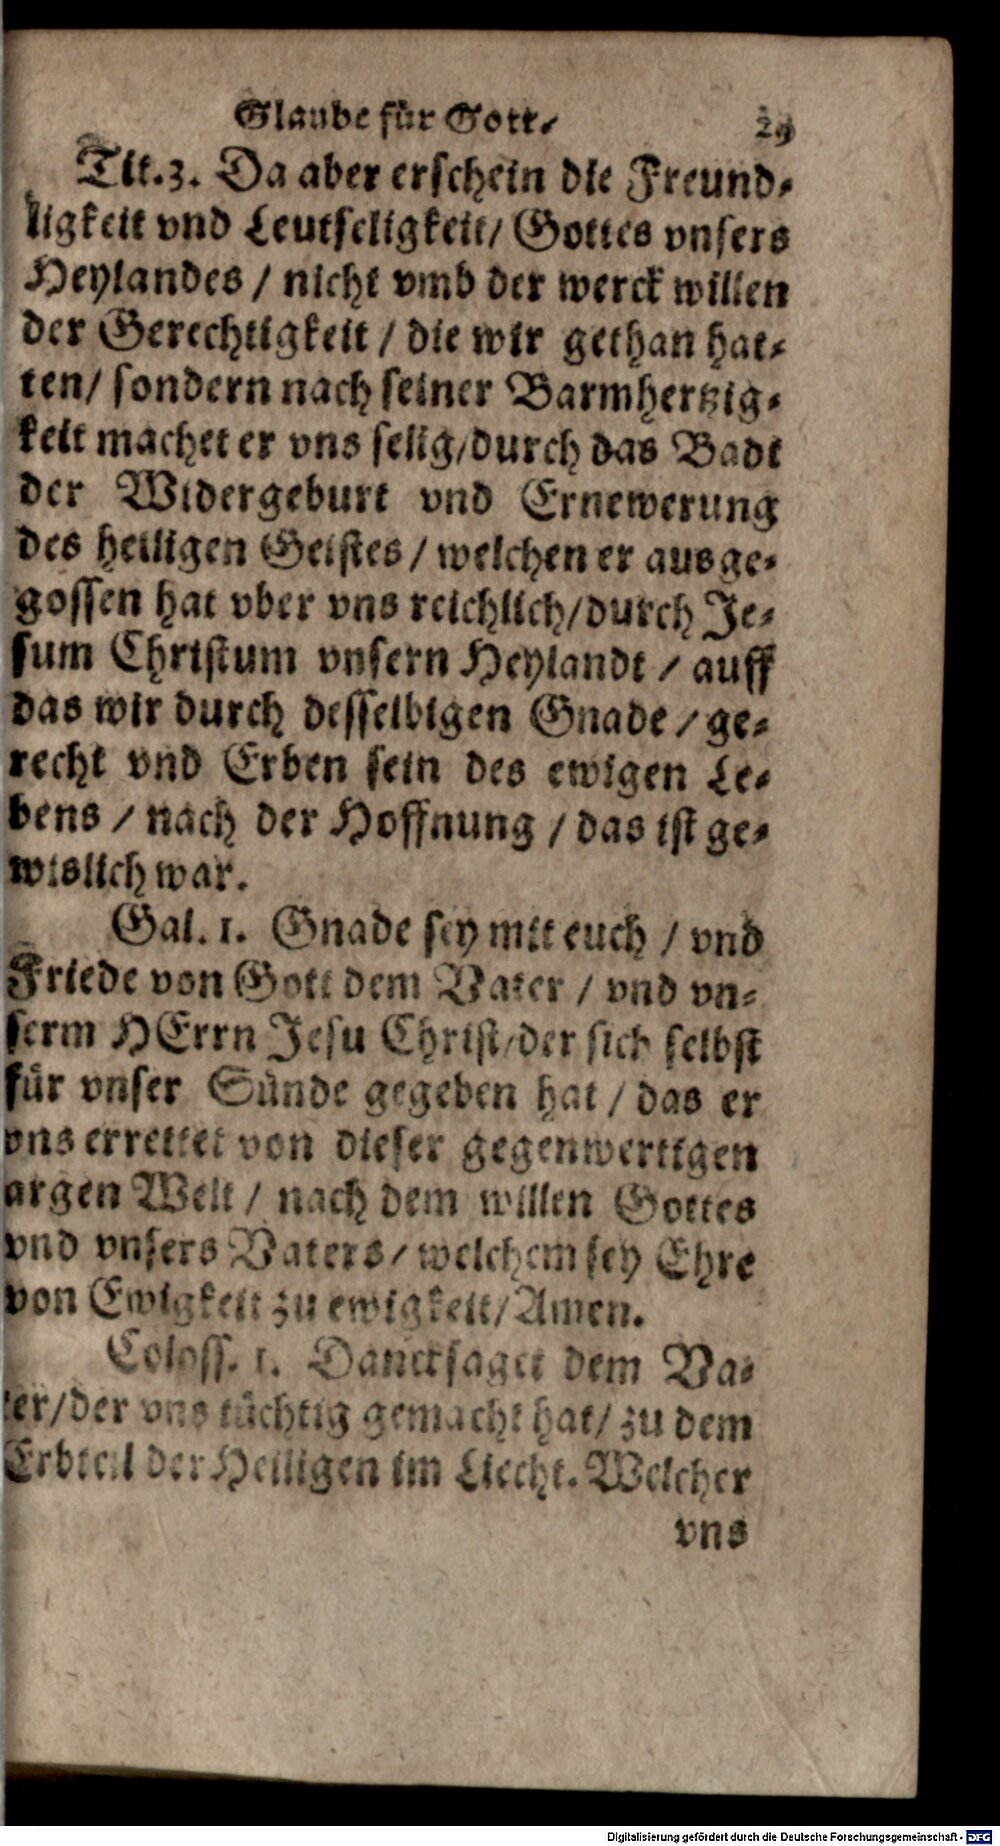 Glaube für Gott. 29
Tit. 3. Da aber erschein die Freund-
ligkeit vnd Leutseligkeit/ Gottes vnsers
Heylandes / nicht vmb der werck willen
der Gerechtigkeit / die wir gethan hat-
ten/ sondern nach seiner Barmhertzig-
keit machet er vns selig/durch das Badt
der Widergeburt vnd Ernewerung
des heiligen Geistes / welchen er ausge-
gossen hat vber vns reichlich/durch Je-
sum Christum vnsern Heylandt / auff
das wir durch desselbigen Gnade / ge-
recht vnd Erben sein des ewigen Le-
bens / nach der Hoffnung / das ist ge-
wislich war.
Gal. 1. Gnade sey mit euch / vnd
Friede von Gott dem Vater / vnd vn-
serm HErrn Jesu Christ/der sich selbst
für vnser Sünde gegeben hat / das er
vns errettet von dieser gegenwertigen
argen Welt / nach dem willen Gottes
vnd vnsers Vaters / welchem sey Ehre
von Ewigkeit zu ewigkeit/Amen.
Coloss. 1. Dancksaget dem Va-
ter/der vns tüchtig gemacht hat/ zu dem
Erbteil der Heiligen im Liecht. Welcher
vns
Digitalisierung gefördert durch die Deutsche Forschungsgemeinschaft - DFG